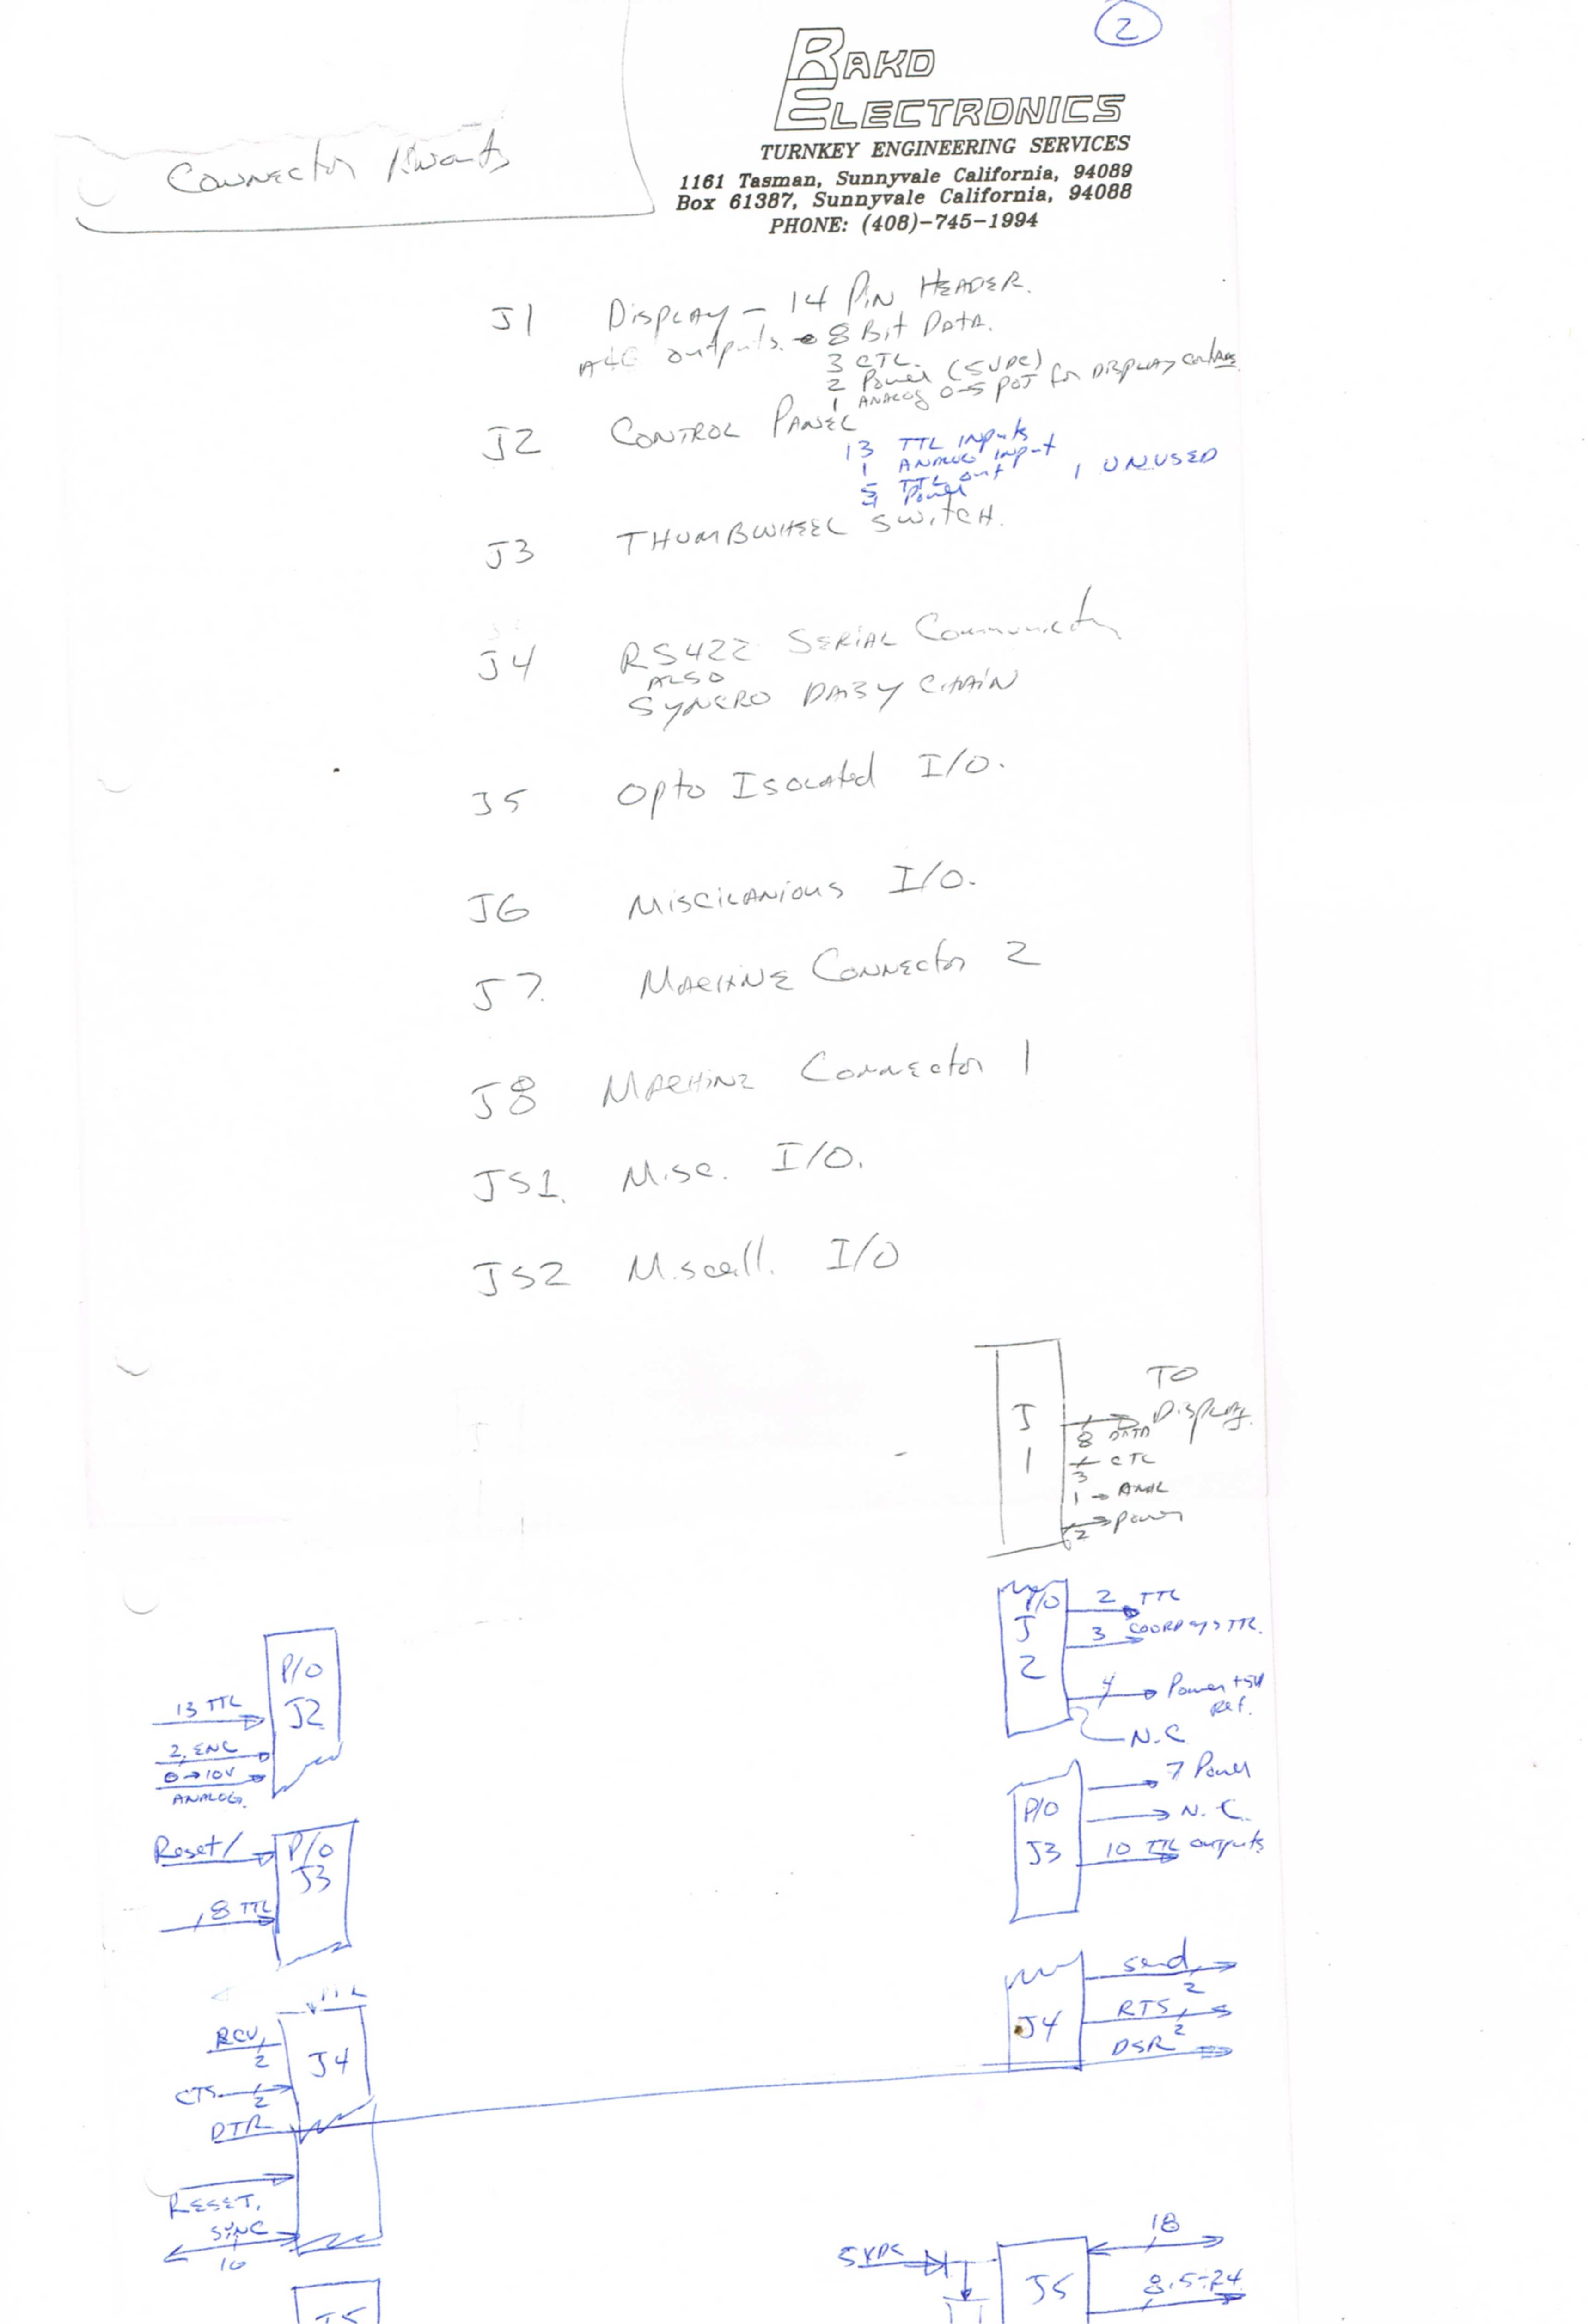 2
RAKO
ELECTRONICS
TURNKEY ENGINEERING SERVICES
1161 Tasman, Sunnyvale California, 94089
Box 61387, Sunnyvale California, 94088
PHONE: (408)-745-1994
Connector
J1 Display - 14 Pin HEADER.
outputs. 8 Bit Data.
3 CTL.
2 Power (5VDC)
1 ANALOG 0-5 POT for DISPLAY
J2 CONTROL PANEL
13 TTL inputs
1 ANALOG input
5 TTL out 1 UNUSED
Power
J3 THUMBWHEEL SWitCH.
J4 RS422 SERIAL
ALSO
SYNCRO DAISY CHAIN
J5 Opto Isolated I/O.
J6 Miscilanious I/O.
J7. MACHINE Connector 2
J8 MACHINE Connector 1
JS1. Misc. I/O.
JS2 Miscell. I/O
J 1
TO
Display.
8 DATA
3 CTL
1
2 power
P/O
J2
13 TTL
2 ENC
0→10V
ANALOG.
P/O
J
2
2 TTL
3 TTL.
4 Power +5V
Ref.
N.C
P/O
J3
Reset/
8 TTL
P/O
J3
7 Power
N.C.
10 TTL outputs
J4
RCV
2
CTS
2
DTR
RESET.
SYNC
10
J4
Send
2
RTS
2
DSR
5VDC
J5
18
8.5-24
J5